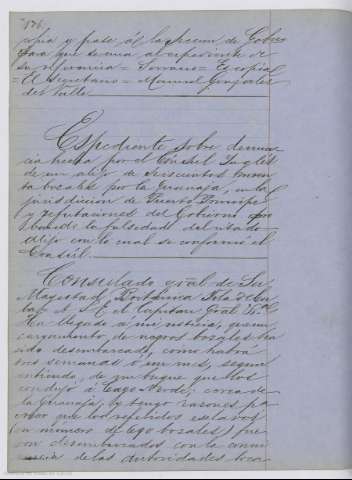 136
copia y pase á la seccion de Gober
para que se una al espediente de
su referencia = Serrano = Es copia
= El Secretario = Manuel Gonzalez
del Valle
Espediente sobre denun
cia hecha por el Cónsul Ingles
de un alijo de seiscientos noven
ta bozales por la Guanaja, en la
jurisdiccion de Puerto Principe
y refutaciones del Gobierno
la falsedad del citado
alijo con lo cual se conformó el
Consúl.
Consulado gral de Su
Magestad Británica Isla de Cu
ba = A S.E. el Capitan Gral
Ha llegado á mi noticia, que un
cargamento de negros bozales ha
sido desembarcado, como habrá
tres semanas ó un mes, segun
entiendo, de un buque que los
condujo á Cayo Verde; cerca de
la Guanaja, y tengo razones pa
ra que los referidos esclavos
(en número de 690 bozales) fue
ron desembarcados con la conni
vencia de las autoridades loca